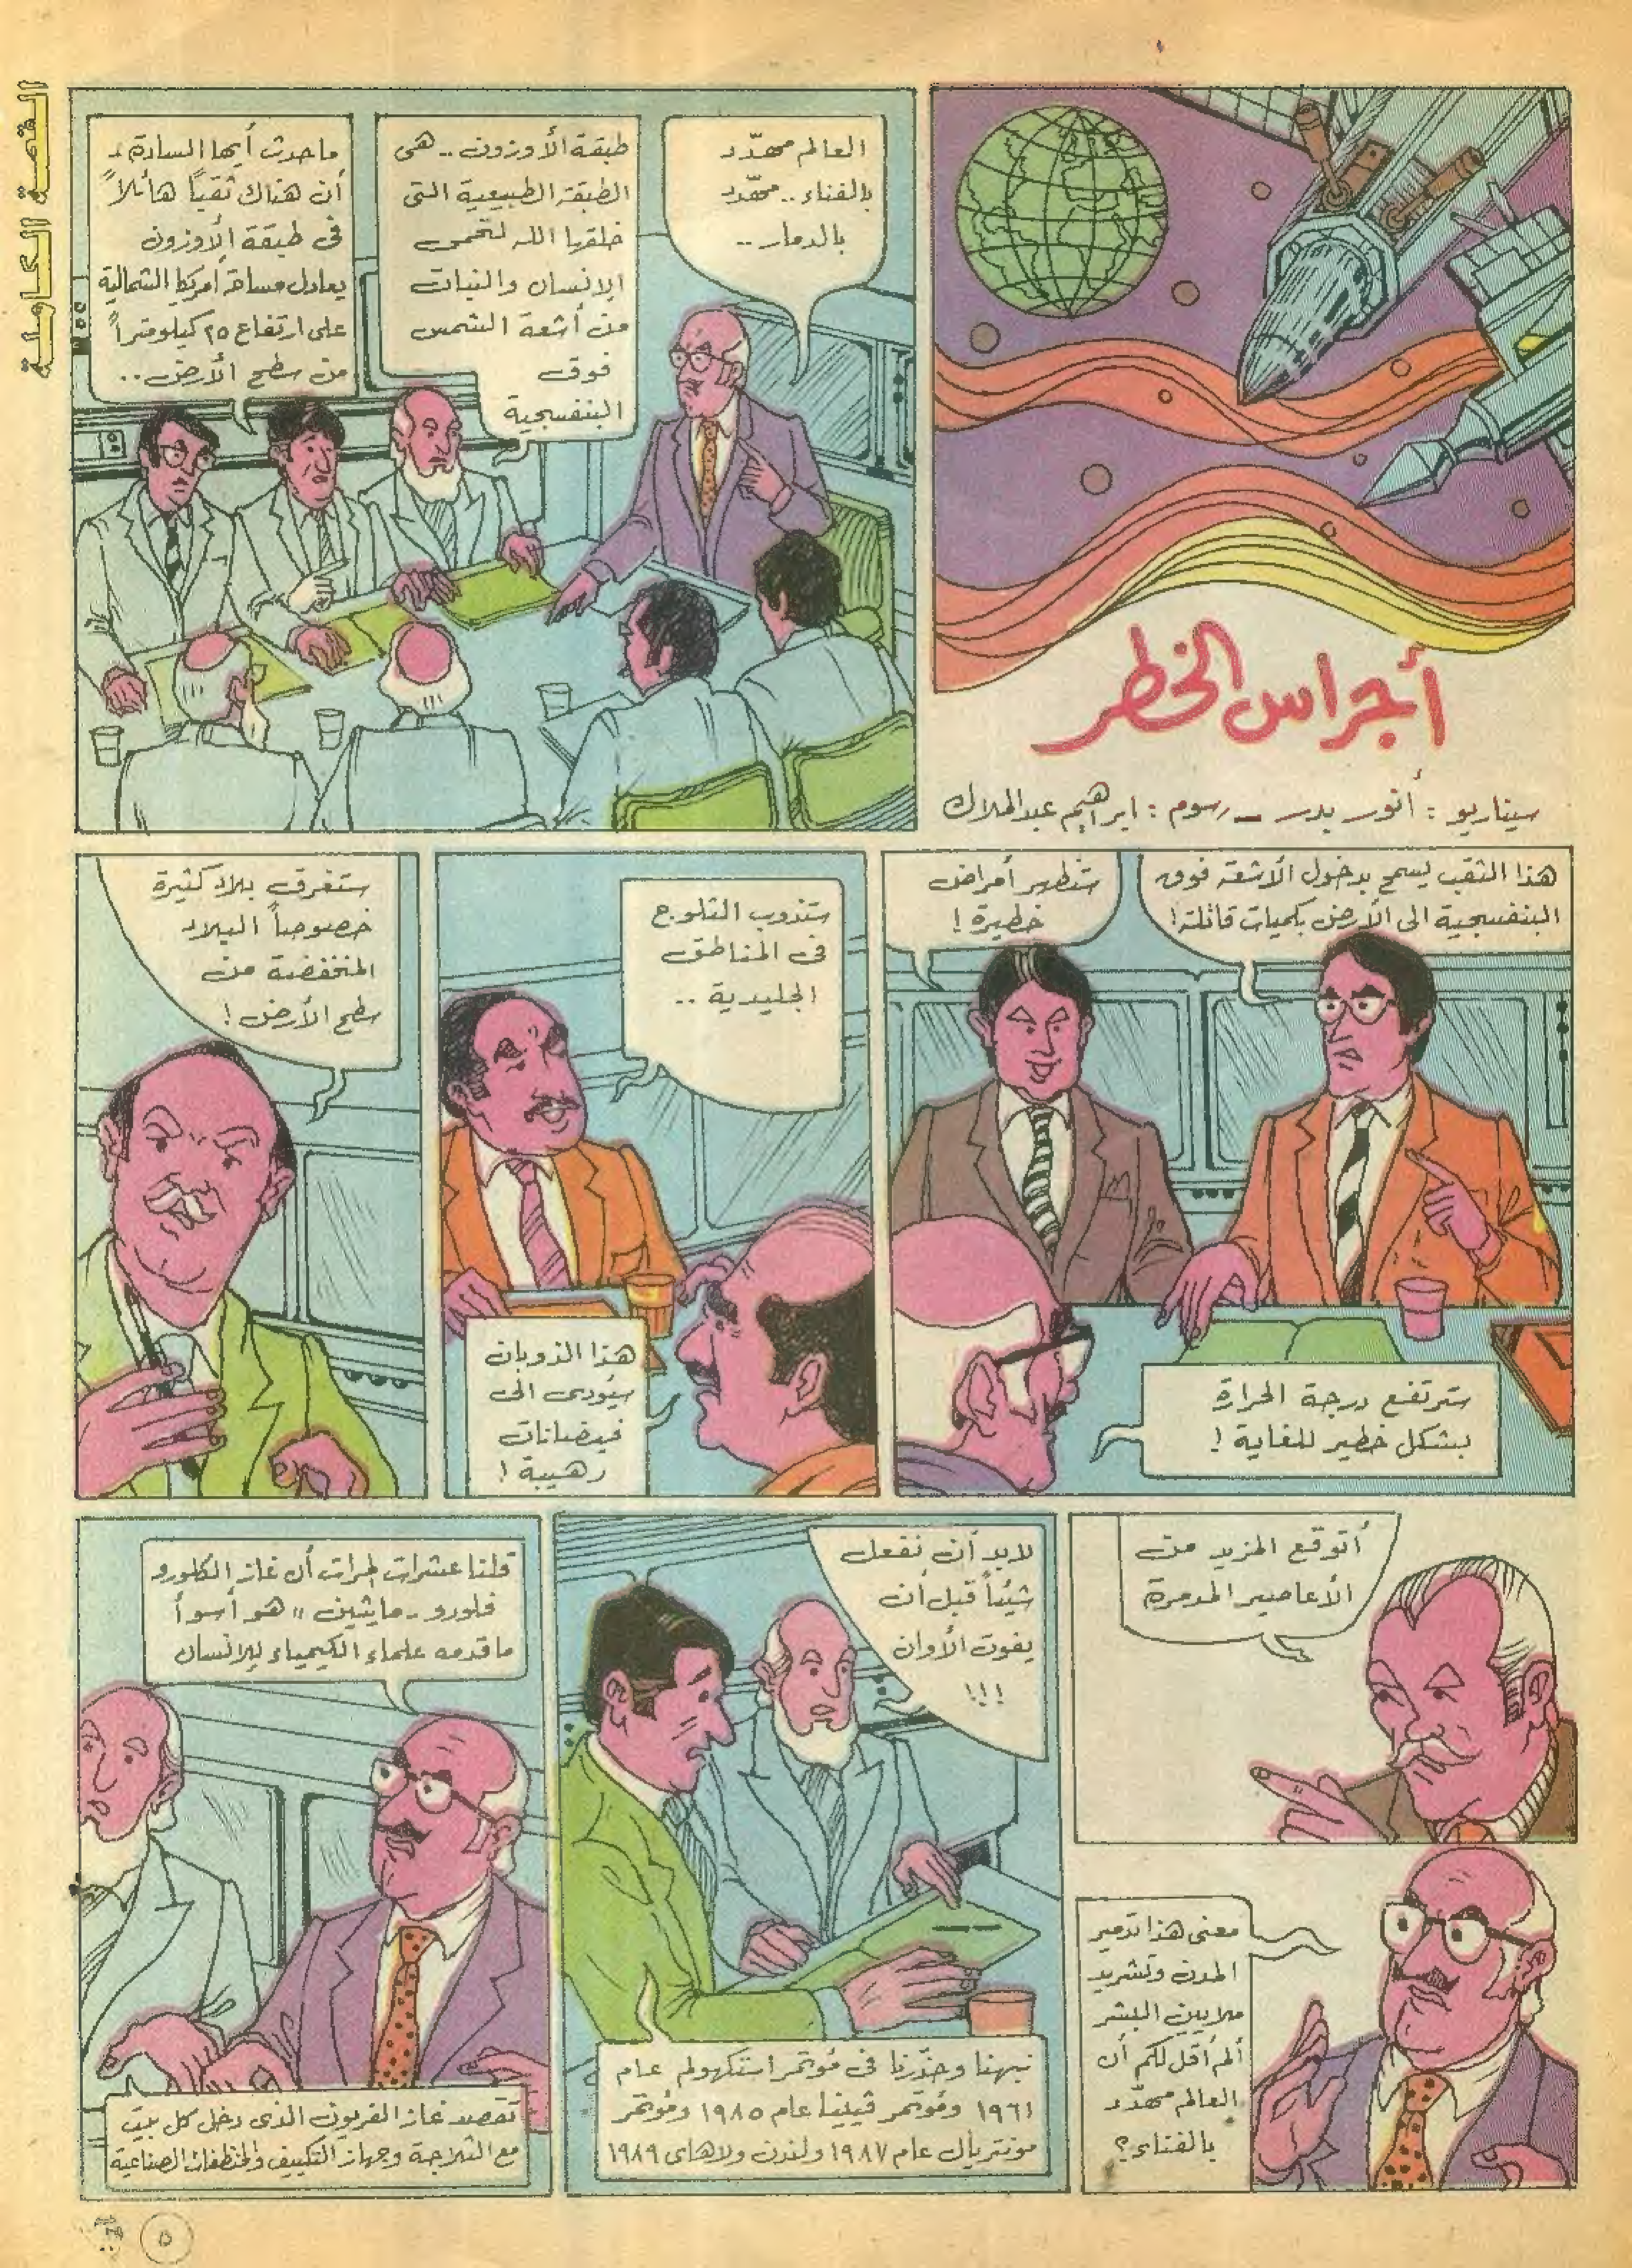 القصة الكاملة
أجراس الخطر
سيناريو : أنور بدر - رسوم : ابراهيم عبد الملاك
العالم مهدّد
بالفناء .. مهدّد
بالدمار ..
طبقة الأوزون .. هى
الطبقة الطبيعية التى
خلقها الله لتحمى
الإنسان والنبات
من أشعة الشمس
فوق
البنفسجية
ما حدث أيها السادة
أن هناك ثقباً هائلاً
فى طبقة الأوزون
يعادل مساحة أمريكا الشمالية
على ارتفاع ٢٥ كيلومتراً
من سطح الأرض ..
هذا الثقب يسمح بدخول الأشعة فوق
البنفسجية الى الأرض بكميات قاتلة !
ستظهر أمراض
خطيرة !
سترتفع درجة الحرارة
بشكل خطير للغاية !
ستذوب الثلوج
فى المناطق
الجليدية ..
هذا الذوبان
سيؤدى الى
فيضانات
رهيبة !
ستغرق بلاد كثيرة
خصوصاً البلاد
المنخفضة من
سطح الأرض !
أتوقع المزيد من
الأعاصير المدمرة
معنى هذا تدمير
المدن وتشريد
ملايين البشر
ألم أقل لكم أن
العالم مهدّد
بالفناء ؟
لابد أن نفعل
شيئاً قبل أن
يفوت الأوان
!!!
نبهنا وحذّرنا فى مؤتمر استكهولم عام
١٩٦١ ومؤتمر فيينا عام ١٩٨٥ ومؤتمر
مونتريال عام ١٩٨٧ ولندن ولاهاى ١٩٨٩
قلنا عشرات المرات أن غاز الكلورو
فلورو - مايثين " هو أسوأ
ما قدمه علماء الكيمياء للانسان
تقصد غاز الفريون الذى دخل كل بيت
مع الثلاجة وجهاز التكييف والمنظفات الصناعية
٥